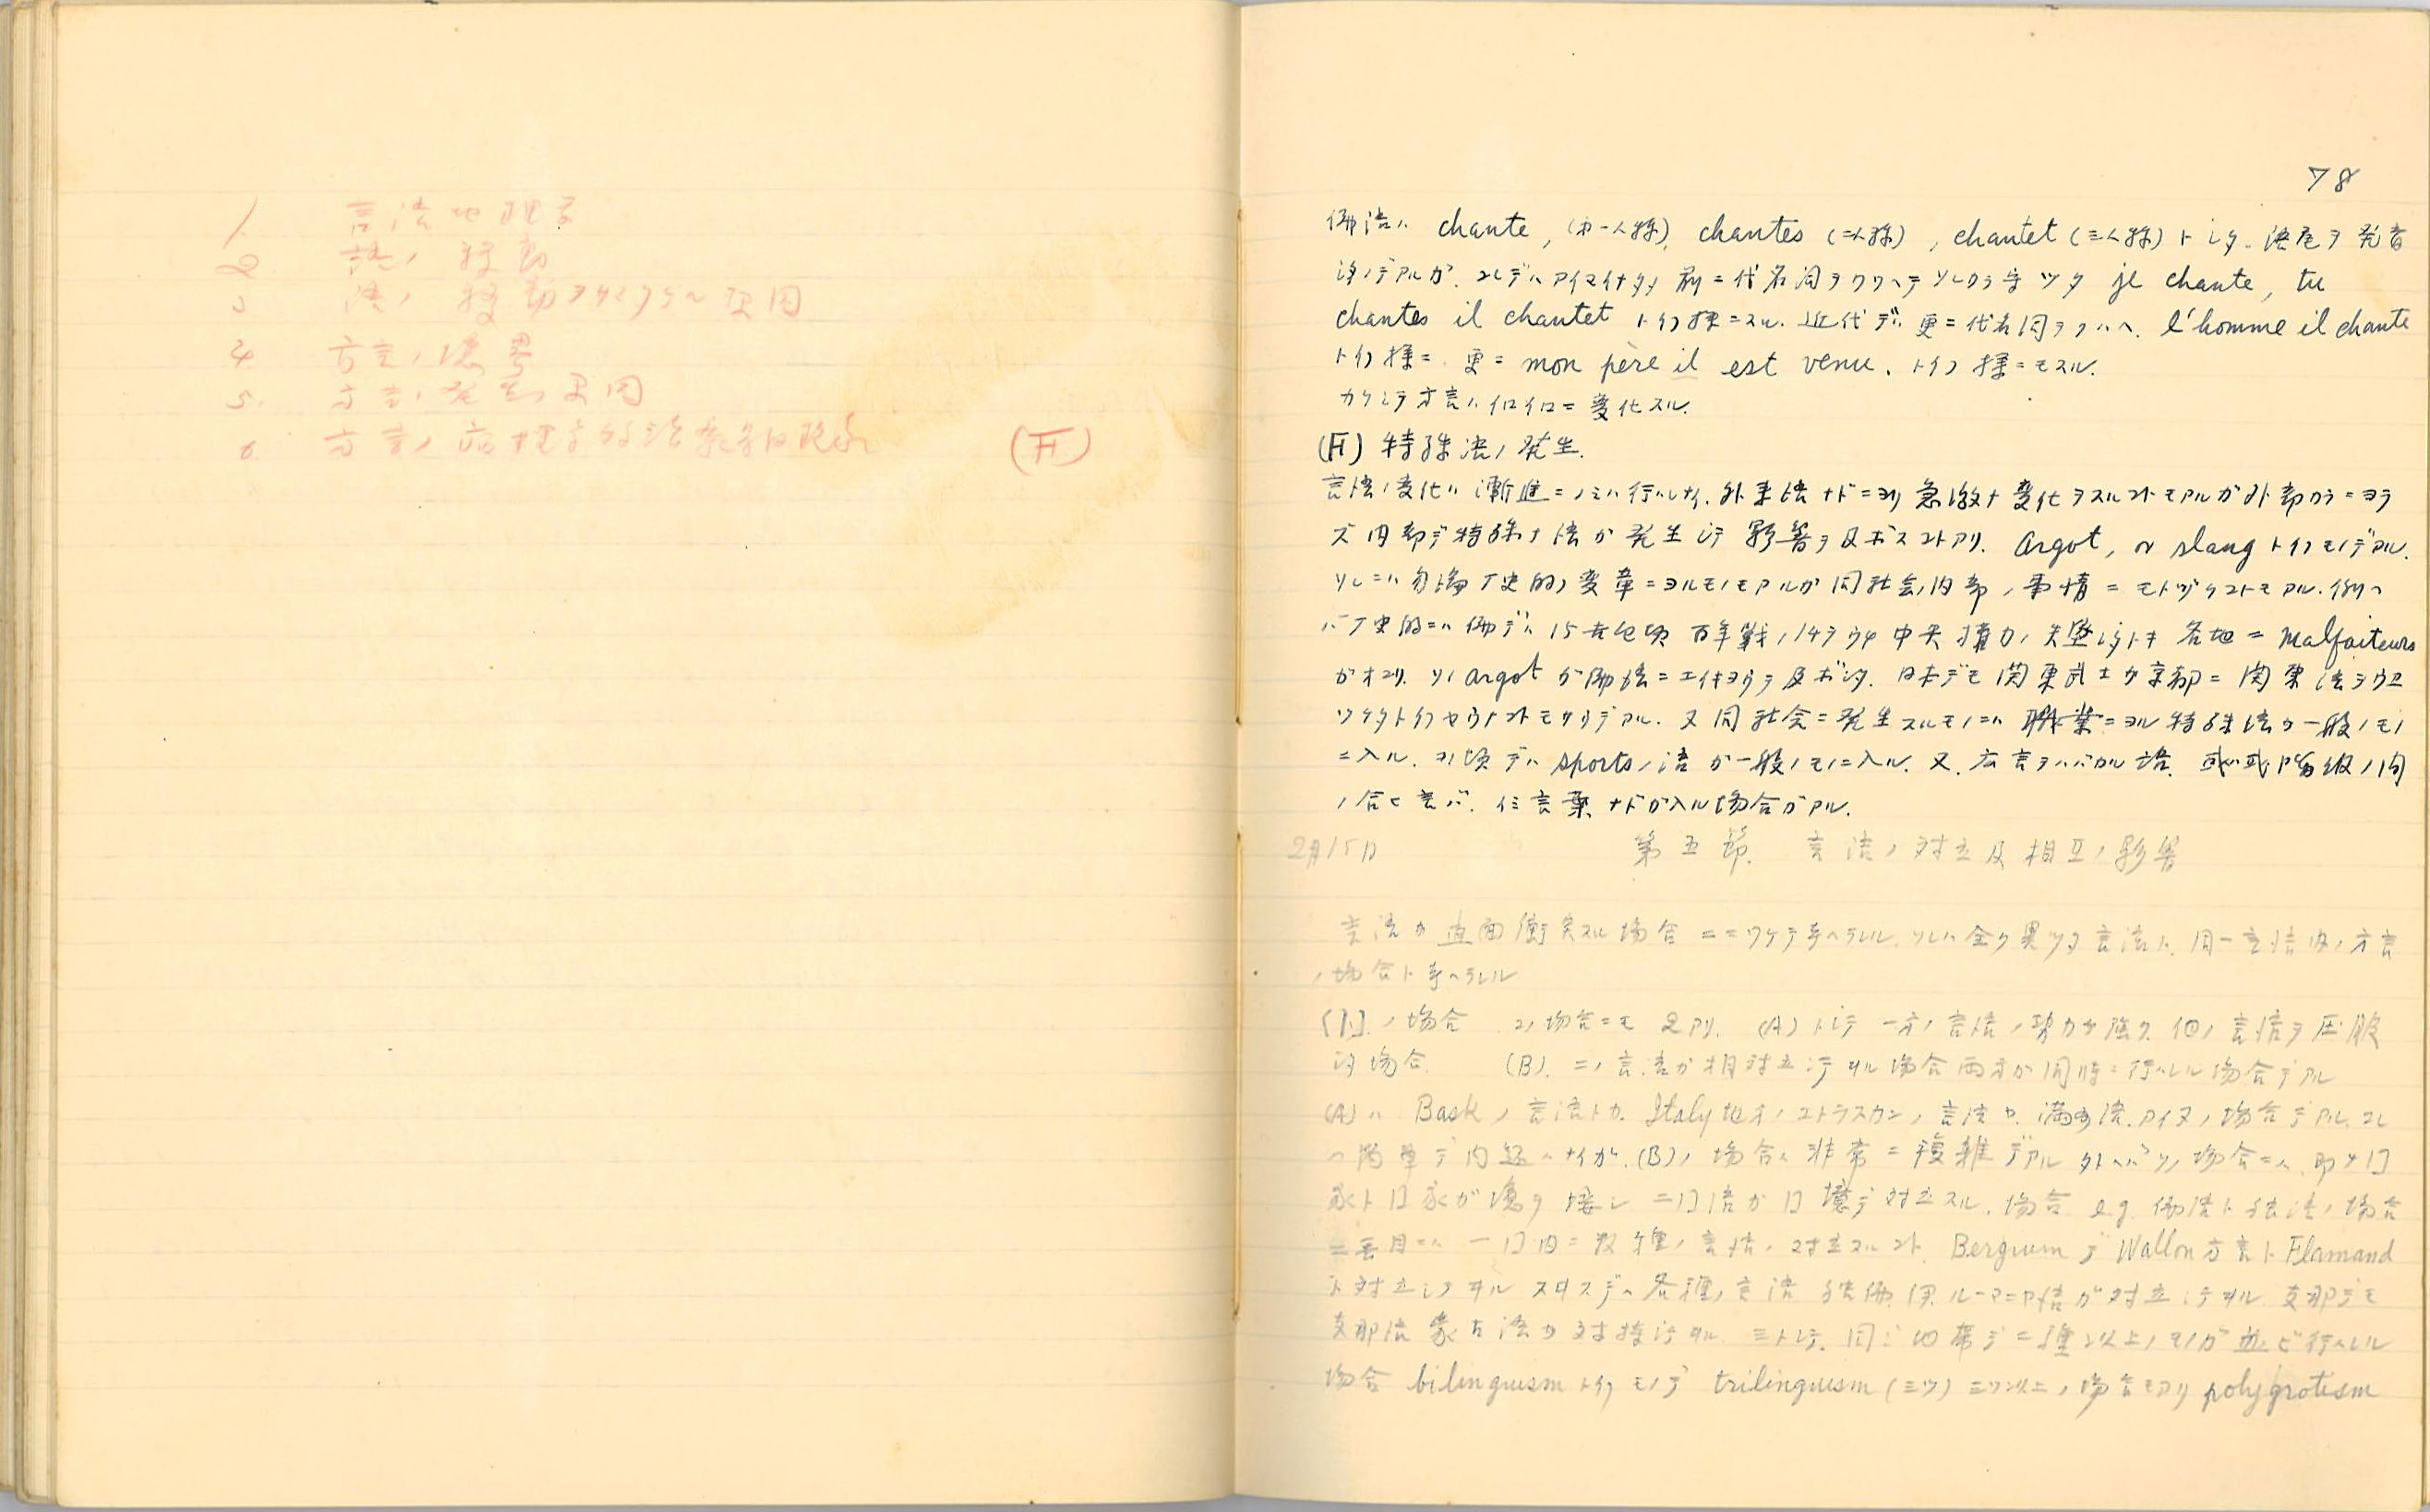 1 言語地理学
2 語ノ移動
3 語ノ移動ヲ 原因
4 方言ノ境界
5. 方言ノ発生ノ原因
6. 方言ノ病理学的治療学的現象 (F)
78
仏語ハ chante, (第一人称), chantes (二人称), chantet (三人称) トシタ. 語尾ヲ発音
シタノデアルガ. コレデハアイマイナタメ前ニ代名詞ヲクワヘテ je chante, tu
chantes il chantet トイフ様ニスル. 近代デハ更ニ代名詞ヲクハヘ. l'homme il chante
トイフ様ニ. 更ニ mon père il est venu. トイフ様ニモスル.
カクシテ方言ハイロイロニ変化スル.
(F) 特殊語ノ発生.
言語ノ変化ハ漸進ニノミハ行ハレナイ. 外来語ナドニヨリ急激ナ変化ヲスルコトモアルガ外部カラニヨラ
ズ内部デ特殊ナ語ガ発生シテ影響ヲ及ボスコトアリ. Argot, or slang トイフモノデアル.
ソレニハ勿論歴史的ノ変革ニヨルモノモアルガ同社会ノ内部ノ事情ニモトヅクコトモアル. 例ヘ
バ歴史的ニハ仏デハ15世紀頃百年戦ノ 中央権力ノ失墜シタトキ各地ニ malfaiteurs
ガオコリ. ソノ argot ガ仏語ニエイキヨウヲ及ボシタ. 日本デモ関東武士ガ京都ニ関東語ヲウエ
ツケタトイフヤウナコトモサウデアル. 又同社会ニ発生スルモノニハ職業ニヨル特殊語ガ一般ノモノ
ニ入ル. コノ頃デハ sports ノ語ガ一般ノモノニ入ル. 又. 広言ヲハバカル語. 或ハ或階級ノ間
ノ合言バ. 仁言葉ナドガ入ル場合ガアル.
2月15日 第五節. 言語ノ対立及相互ノ影響
言語ガ直面衝突スル場合ニ二ワケテ考ヘラレル. ソレハ全ク異ツタ言語ト. 同一言語内ノ方言
ノ場合ト考ヘラレル
[1]. ノ場合 コノ場合ニモ 2アリ. (A) トシテ一方ノ言語ノ勢力ガ強ク他ノ言語ヲ圧服
シタ場合. (B). 二ノ言語ガ相対立シテヰル場合両方ガ同時ニ行ハレル場合デアル
(A)ハ Bask ノ言語トカ. Italy 地方ノエトラスカンノ言語カ. 満州語. アイヌノ場合デアル. コレ
ハ簡単デ問題ハナイガ. (B)ノ場合ハ非常ニ複雑デアル 場合ニハ. 即チ国
家ト国家ガ境ヲ接シ二国語ガ国境デ対立スル. 場合 e.g. 仏語ト独語ノ場合
二番目ニハ一国内ニ数種ノ言語ノ対立スルコト. Bergium デ Wallon 方言ト Flamand
ト対立シテヰル スヰスデハ各種ノ言語 独仏伊. ルーマニヤ語ガ対立シテヰル. 支那デモ
支那語蒙古語ガ対持シテヰル. 三トシテ. 同ジ地帯デ二種以上ノモノガ並ビ行ハレル
場合 bilinguism トイフモノデ trilinguism (三ツ) 三ツ以上ノ場合モアリ polygrotism